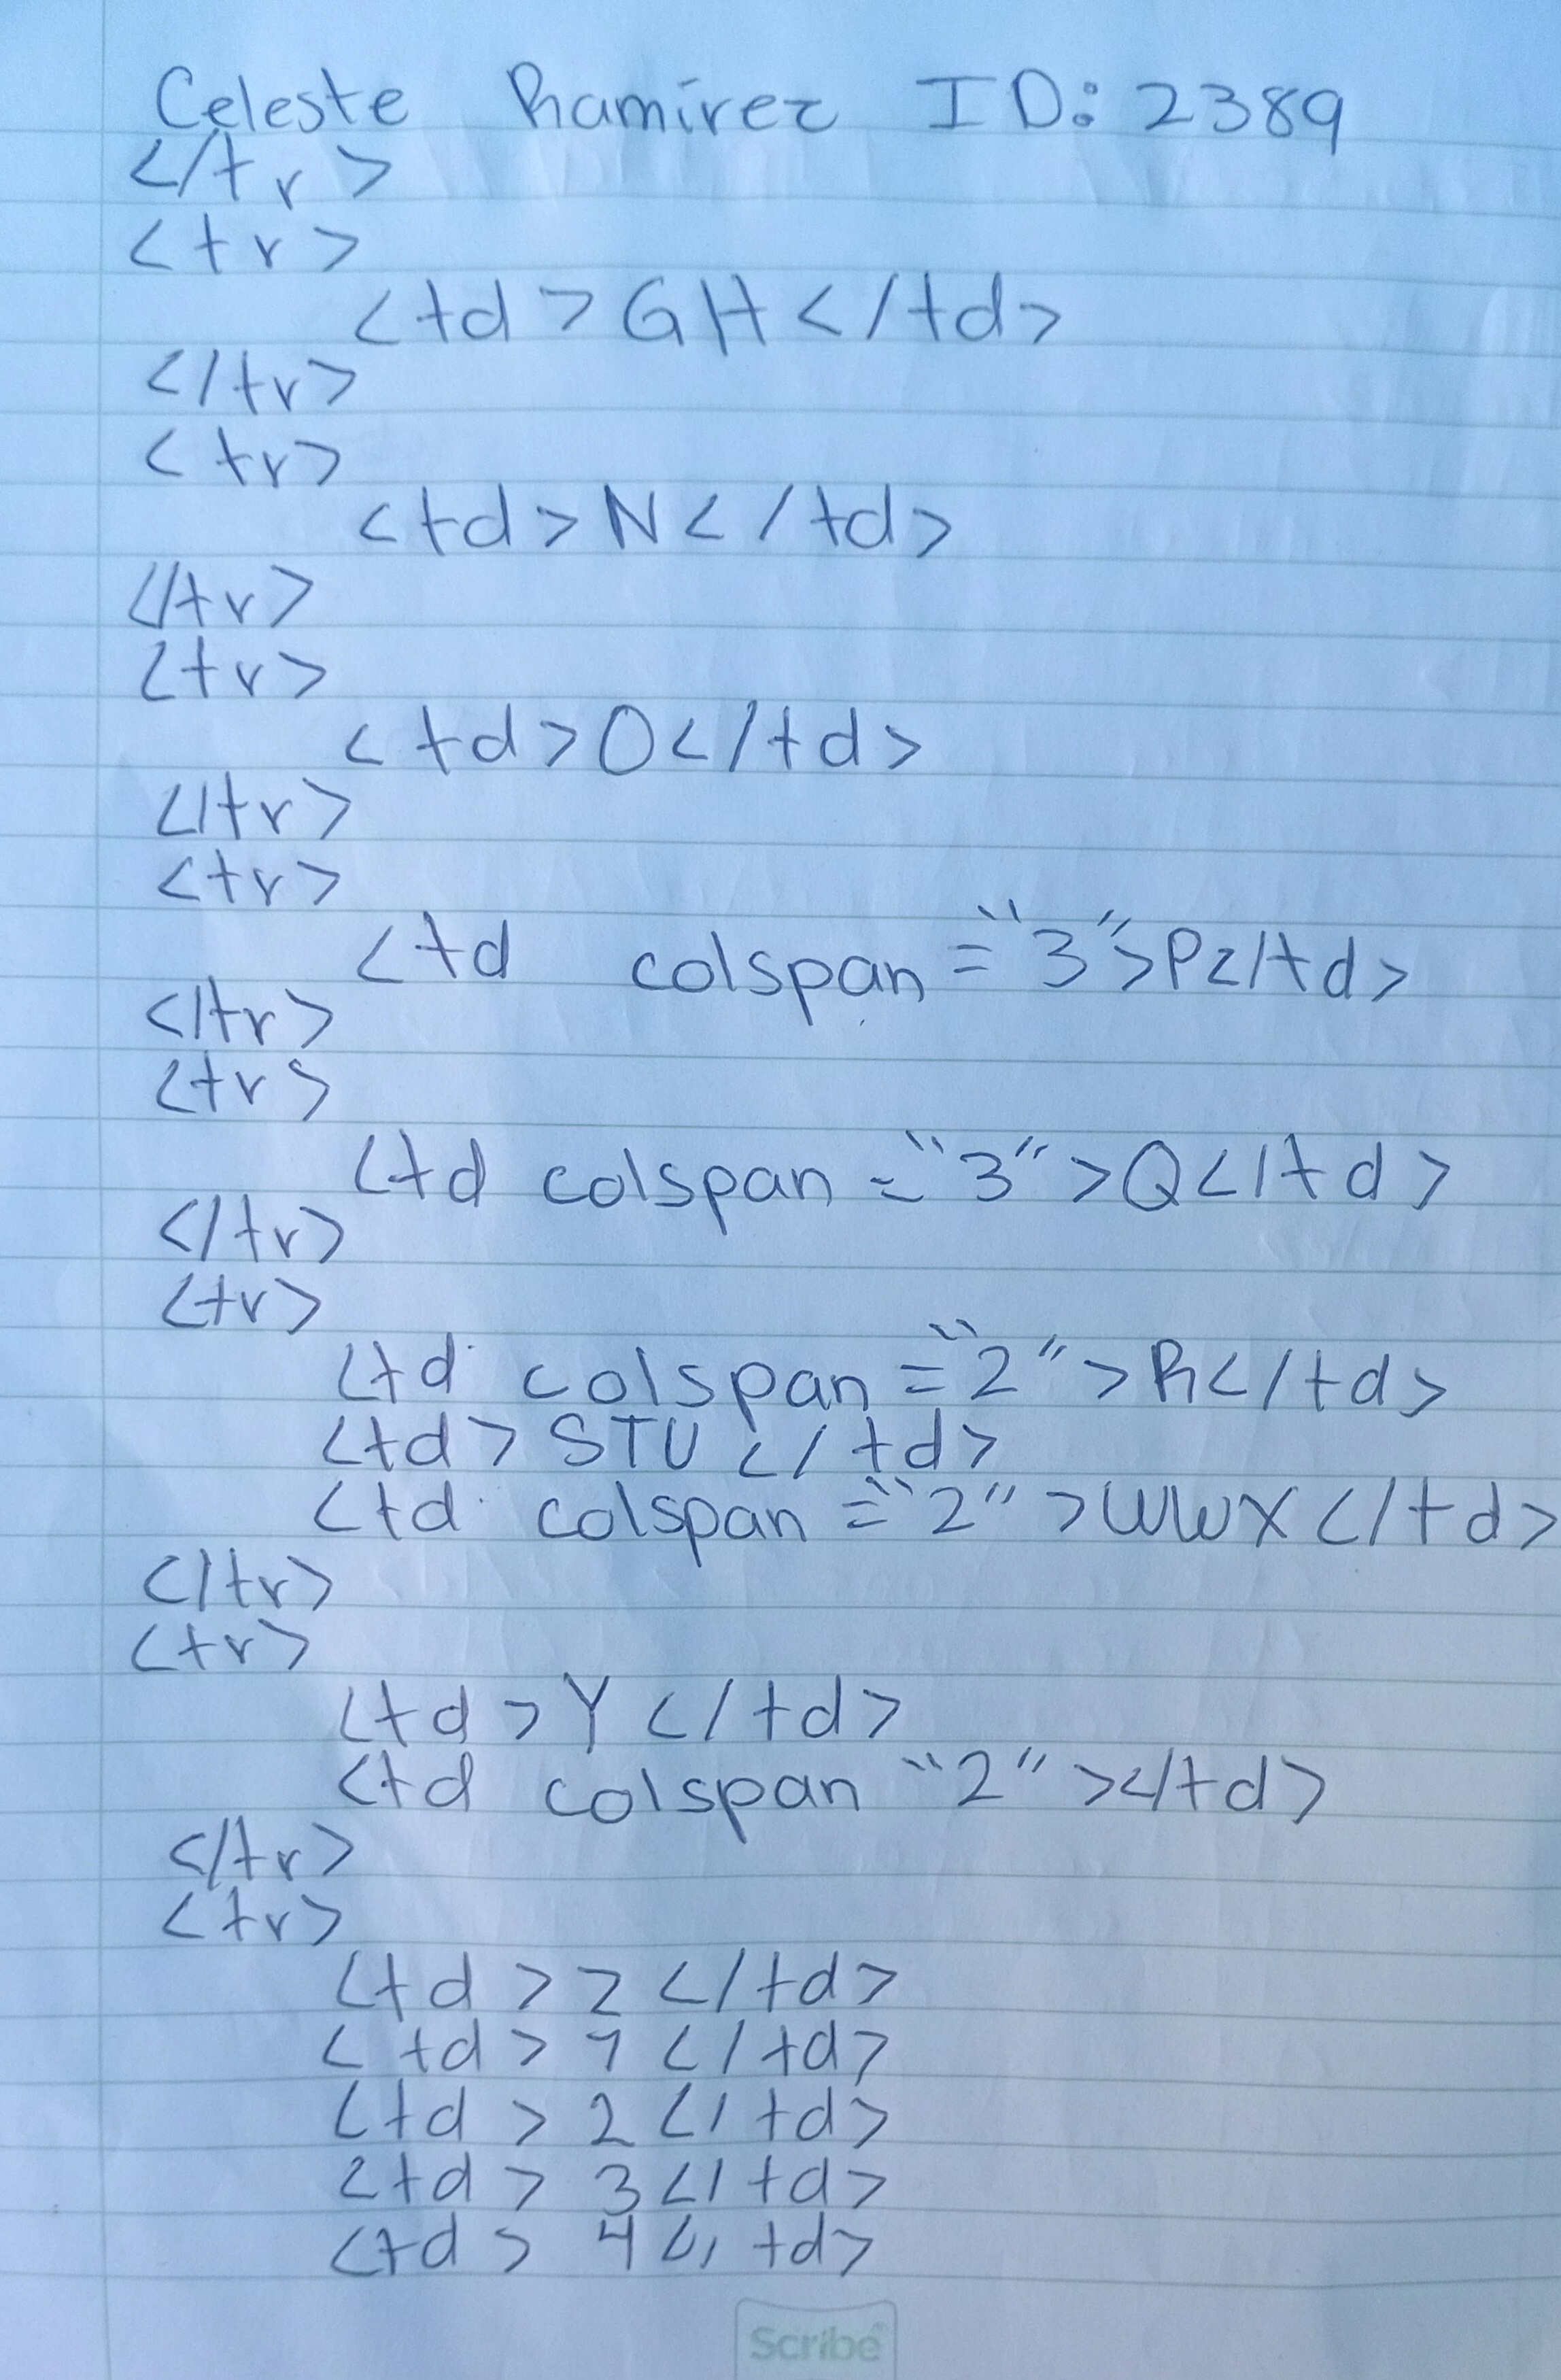 Celeste Ramírez ID: 2389
</tr>
<tr>
<td>GH</td>
</tr>
<tr>
<td>N</td>
</tr>
<tr>
<td>O</td>
</tr>
<tr>
<td colspan="3">P</td>
</tr>
<tr>
<td colspan="3">Q</td>
</tr>
<tr>
<td colspan="2">R</td>
<td>STU</td>
<td colspan="2">WWX</td>
</tr>
<tr>
<td>Y</td>
<td colspan "2"></td>
</tr>
<tr>
<td>z</td>
<td>1</td>
<td>2</td>
<td>3</td>
<td>4</td>
Scribe